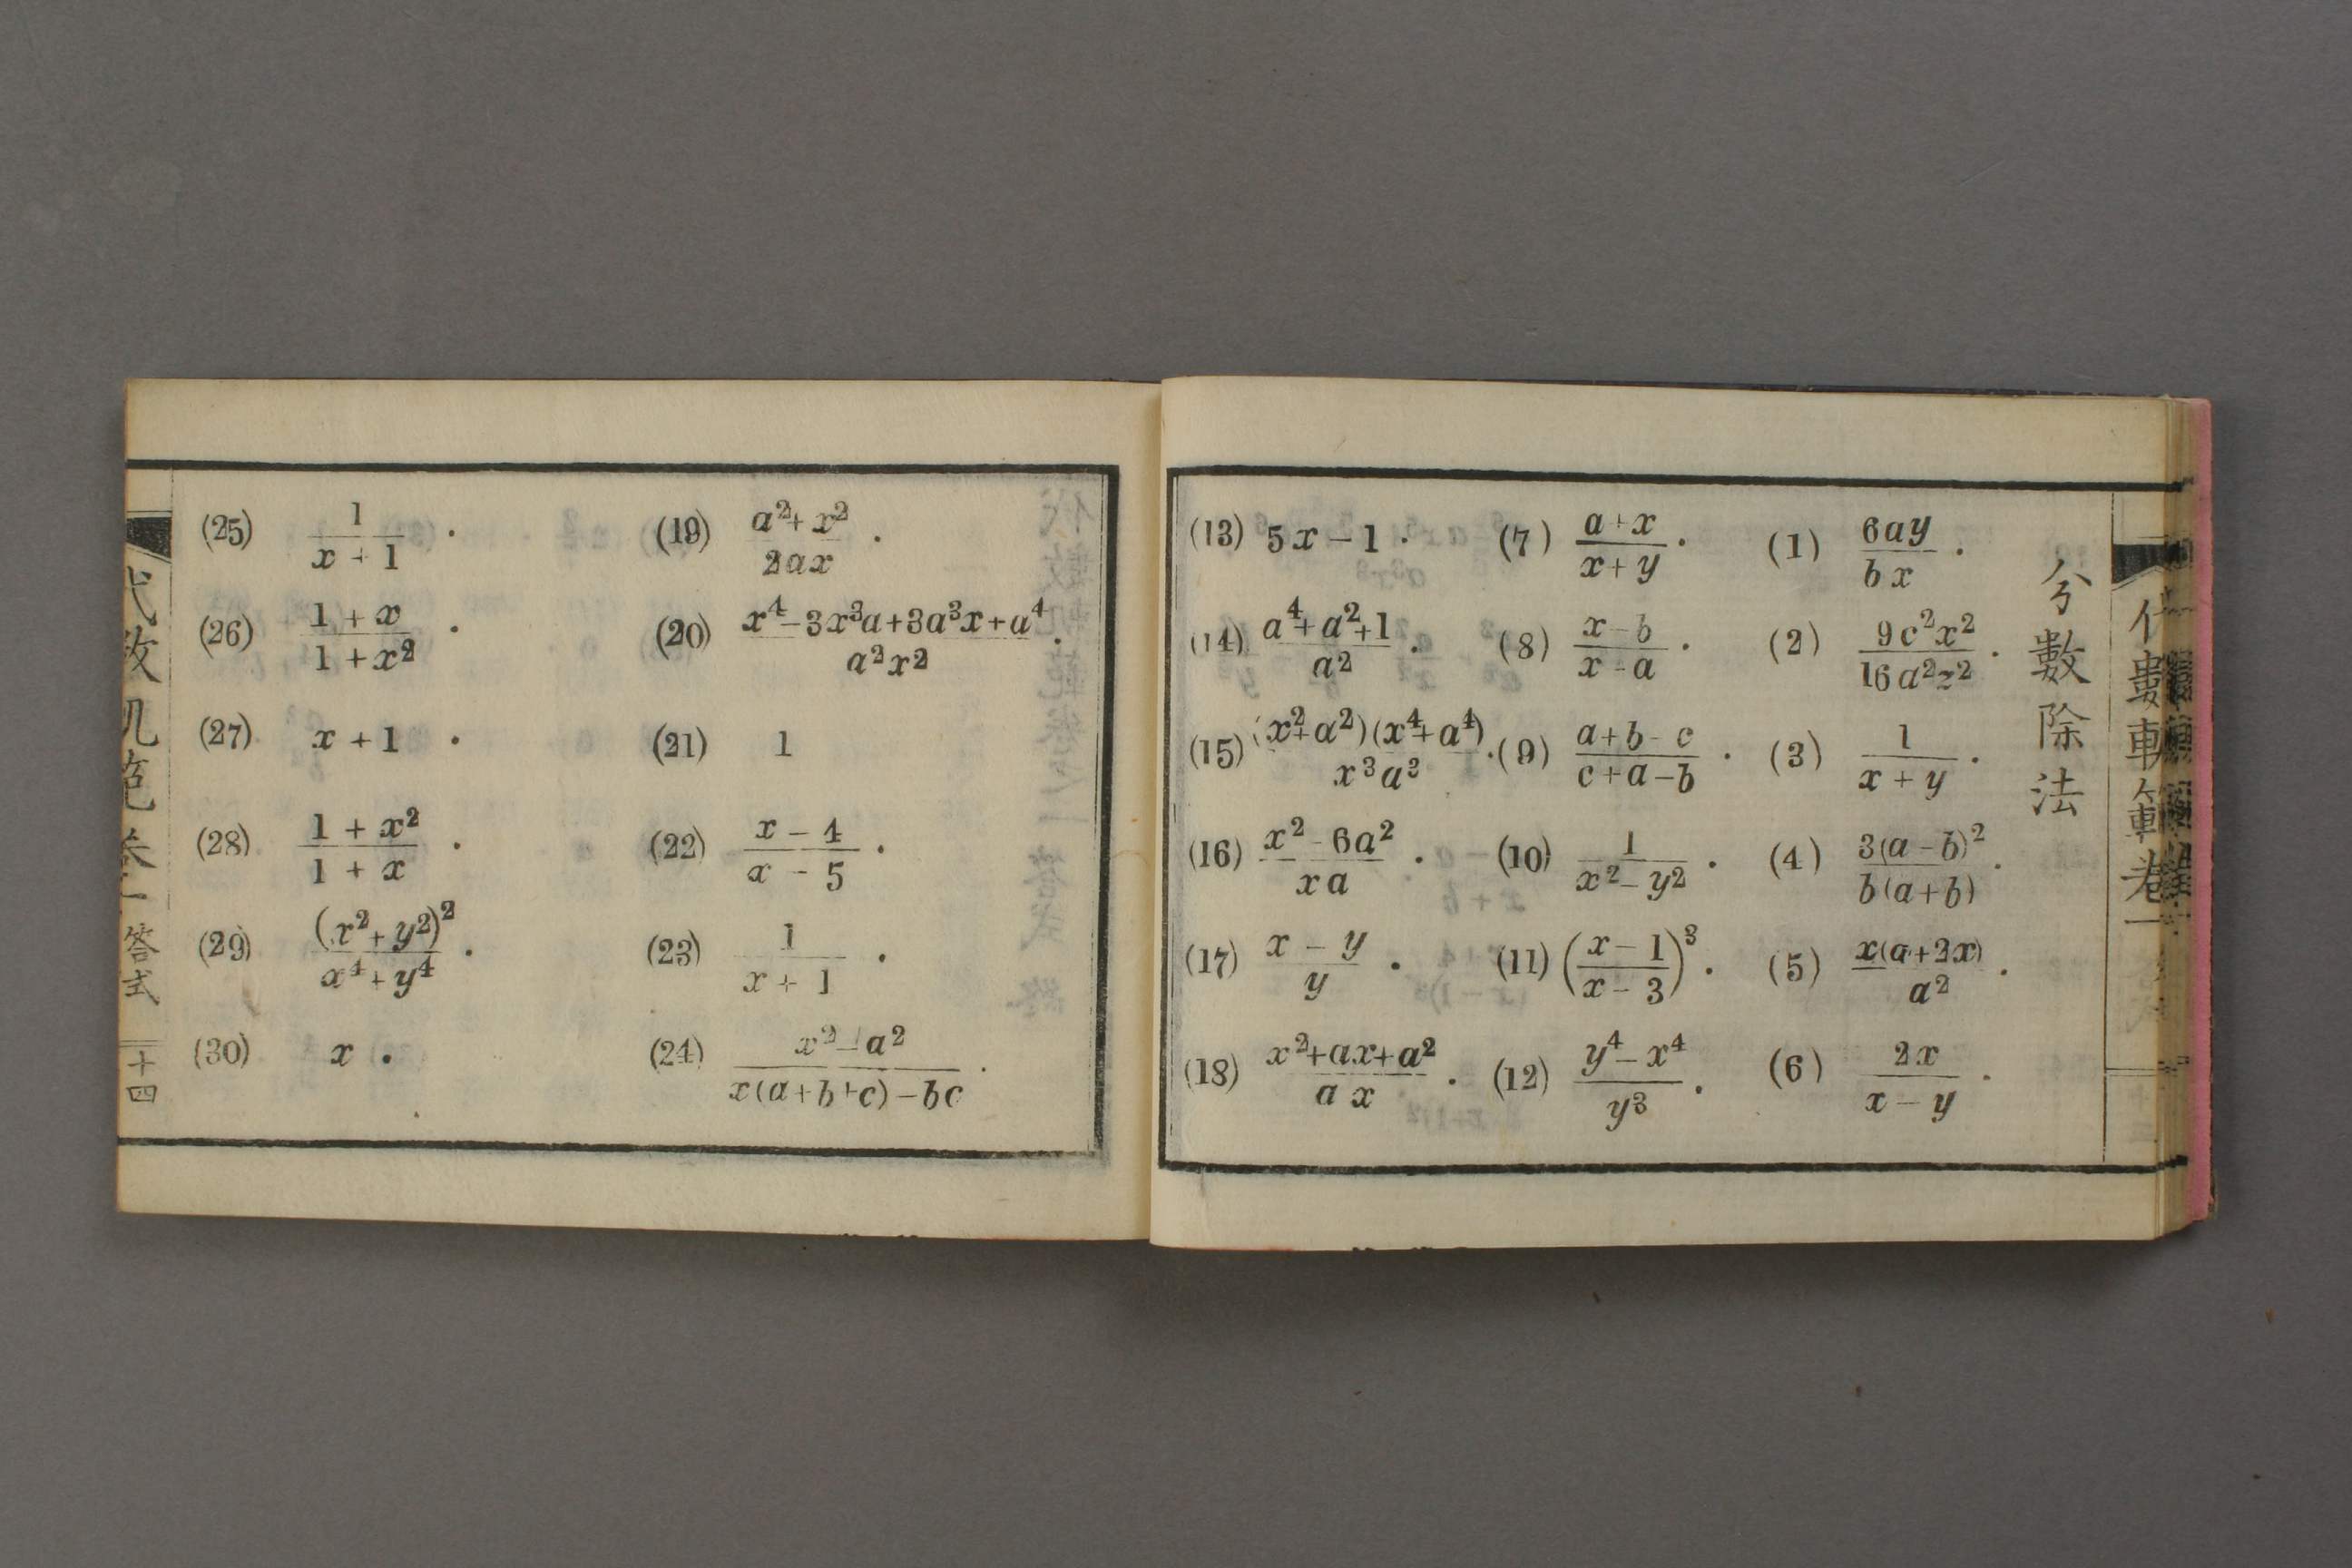 分數除法
(1) 6ay/bx .
(2) 9c²x²/16a²z² .
(3) 1/(x+y) .
(4) 3(a-b)²/b(a+b) .
(5) x(a+2x)/a² .
(6) 2x/(x-y) .
(7) (a+x)/(x+y) .
(8) (x-b)/(x-a) .
(9) (a+b-c)/(c+a-b) .
(10) 1/(x²-y²) .
(11) ((x-1)/(x-3))³ .
(12) (y⁴-x⁴)/y³ .
(13) 5x-1 .
(14) (a⁴+a²+1)/a² .
(15) (x²+a²)(x⁴+a⁴)/x³a³ .
(16) (x²-6a²)/xa .
(17) (x-y)/y .
(18) (x²+ax+a²)/ax .
(19) (a²+x²)/2ax .
(20) (x⁴-3x³a+3a³x+a⁴)/a²x² .
(21) 1
(22) (x-4)/(x-5) .
(23) 1/(x+1) .
(24) (x²-a²)/(x(a+b+c)-bc) .
(25) 1/(x+1) .
(26) (1+x)/(1+x²) .
(27) x+1 .
(28) (1+x²)/(1+x) .
(29) (x²+y²)²/(x⁴+y⁴) .
(30) x .
答式
十四